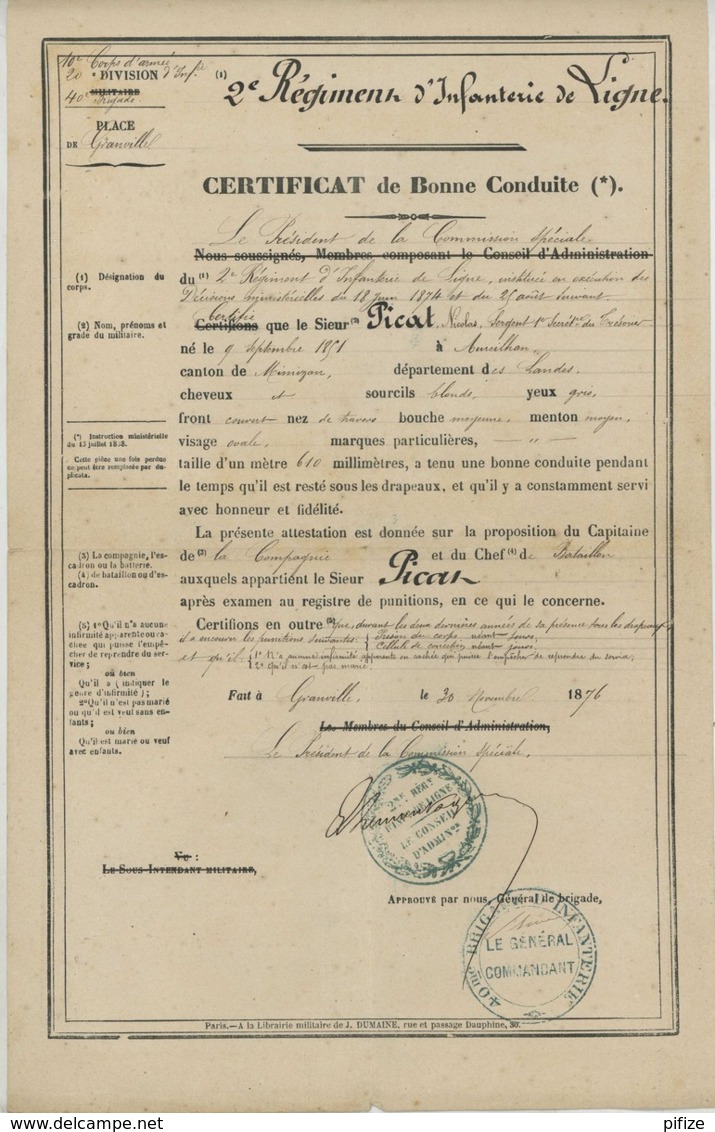 10e Corps d'armée
20e DIVISION d'Inf.ie
MILITAIRE
40e Brigade.
PLACE
DE Granville
(1) 2e Régiment d'Infanterie de Ligne.
CERTIFICAT de Bonne Conduite (*).
Le Président de la Commission spéciale
Nous soussignés, Membres composant le Conseil d'Administration
du (1) 2e Régiment d'Infanterie de Ligne, instituée en exécution des
Décisions ministérielles du 18 juin 1874 et du 25 août suivant
Certifie
Certifions que le Sieur (2) Picat, Nicolas, Sergent 1er Secrét.re du Trésorier
né le 9 septembre 1851 à Aureilhan,
canton de Mimizan, département des Landes,
cheveux et sourcils blonds, yeux gris,
front couvert nez de travers bouche moyenne, menton moyen,
visage ovale, marques particulières, — " —
taille d'un mètre 610 millimètres, a tenu une bonne conduite pendant
le temps qu'il est resté sous les drapeaux, et qu'il y a constamment servi
avec honneur et fidélité.
La présente attestation est donnée sur la proposition du Capitaine
de (3) la Compagnie et du Chef (4) de Bataillon
auxquels appartient le Sieur Picat
après examen au registre de punitions, en ce qui le concerne.
Certifions en outre (5) Que, durant les deux dernières années de sa présence sous les drapeaux
il a encouru les punitions suivantes: { Prison du corps néant jours.
Cellule de correction néant jours.
et qu'il: { 1° N'a aucune infirmité apparente ou cachée qui puisse l'empêcher de reprendre du service,
2° qu'il n'est pas marié.
Fait à Granville, le 30 Novembre 1876
Les Membres du Conseil d'Administration,
Le Président de la Commission spéciale,
(1) Désignation du
corps.
(2) Nom, prénoms et
grade du militaire.
(*) Instruction ministérielle
du 15 juillet 1858.
Cette pièce une fois perdue
ne peut être remplacée par du-
plicata.
(3) La compagnie, l'es-
cadron ou la batterie.
(4) de bataillon ou d'es-
cadron.
(5) 1° Qu'il n'a aucune
infirmité apparente ou ca-
chée qui puisse l'empê-
cher de reprendre du ser-
vice;
où bien
Qu'il a (indiquer le
genre d'infirmité);
2° Qu'il n'est pas marié
ou qu'il est veuf sans en-
fants;
ou bien
Qu'il est marié ou veuf
avec enfants.
2ME RÉGT
D'INF. DE LIGNE
LE CONSEIL
D'ADMINON
Vu :
LE SOUS-INTENDANT MILITAIRE,
APPROUVÉ par nous, Général de brigade,
40me BRIGADE D'INFANTERIE
LE GÉNÉRAL
COMMANDANT
Paris.—A la Librairie militaire de J. DUMAINE, rue et passage Dauphine, 30.
pifize